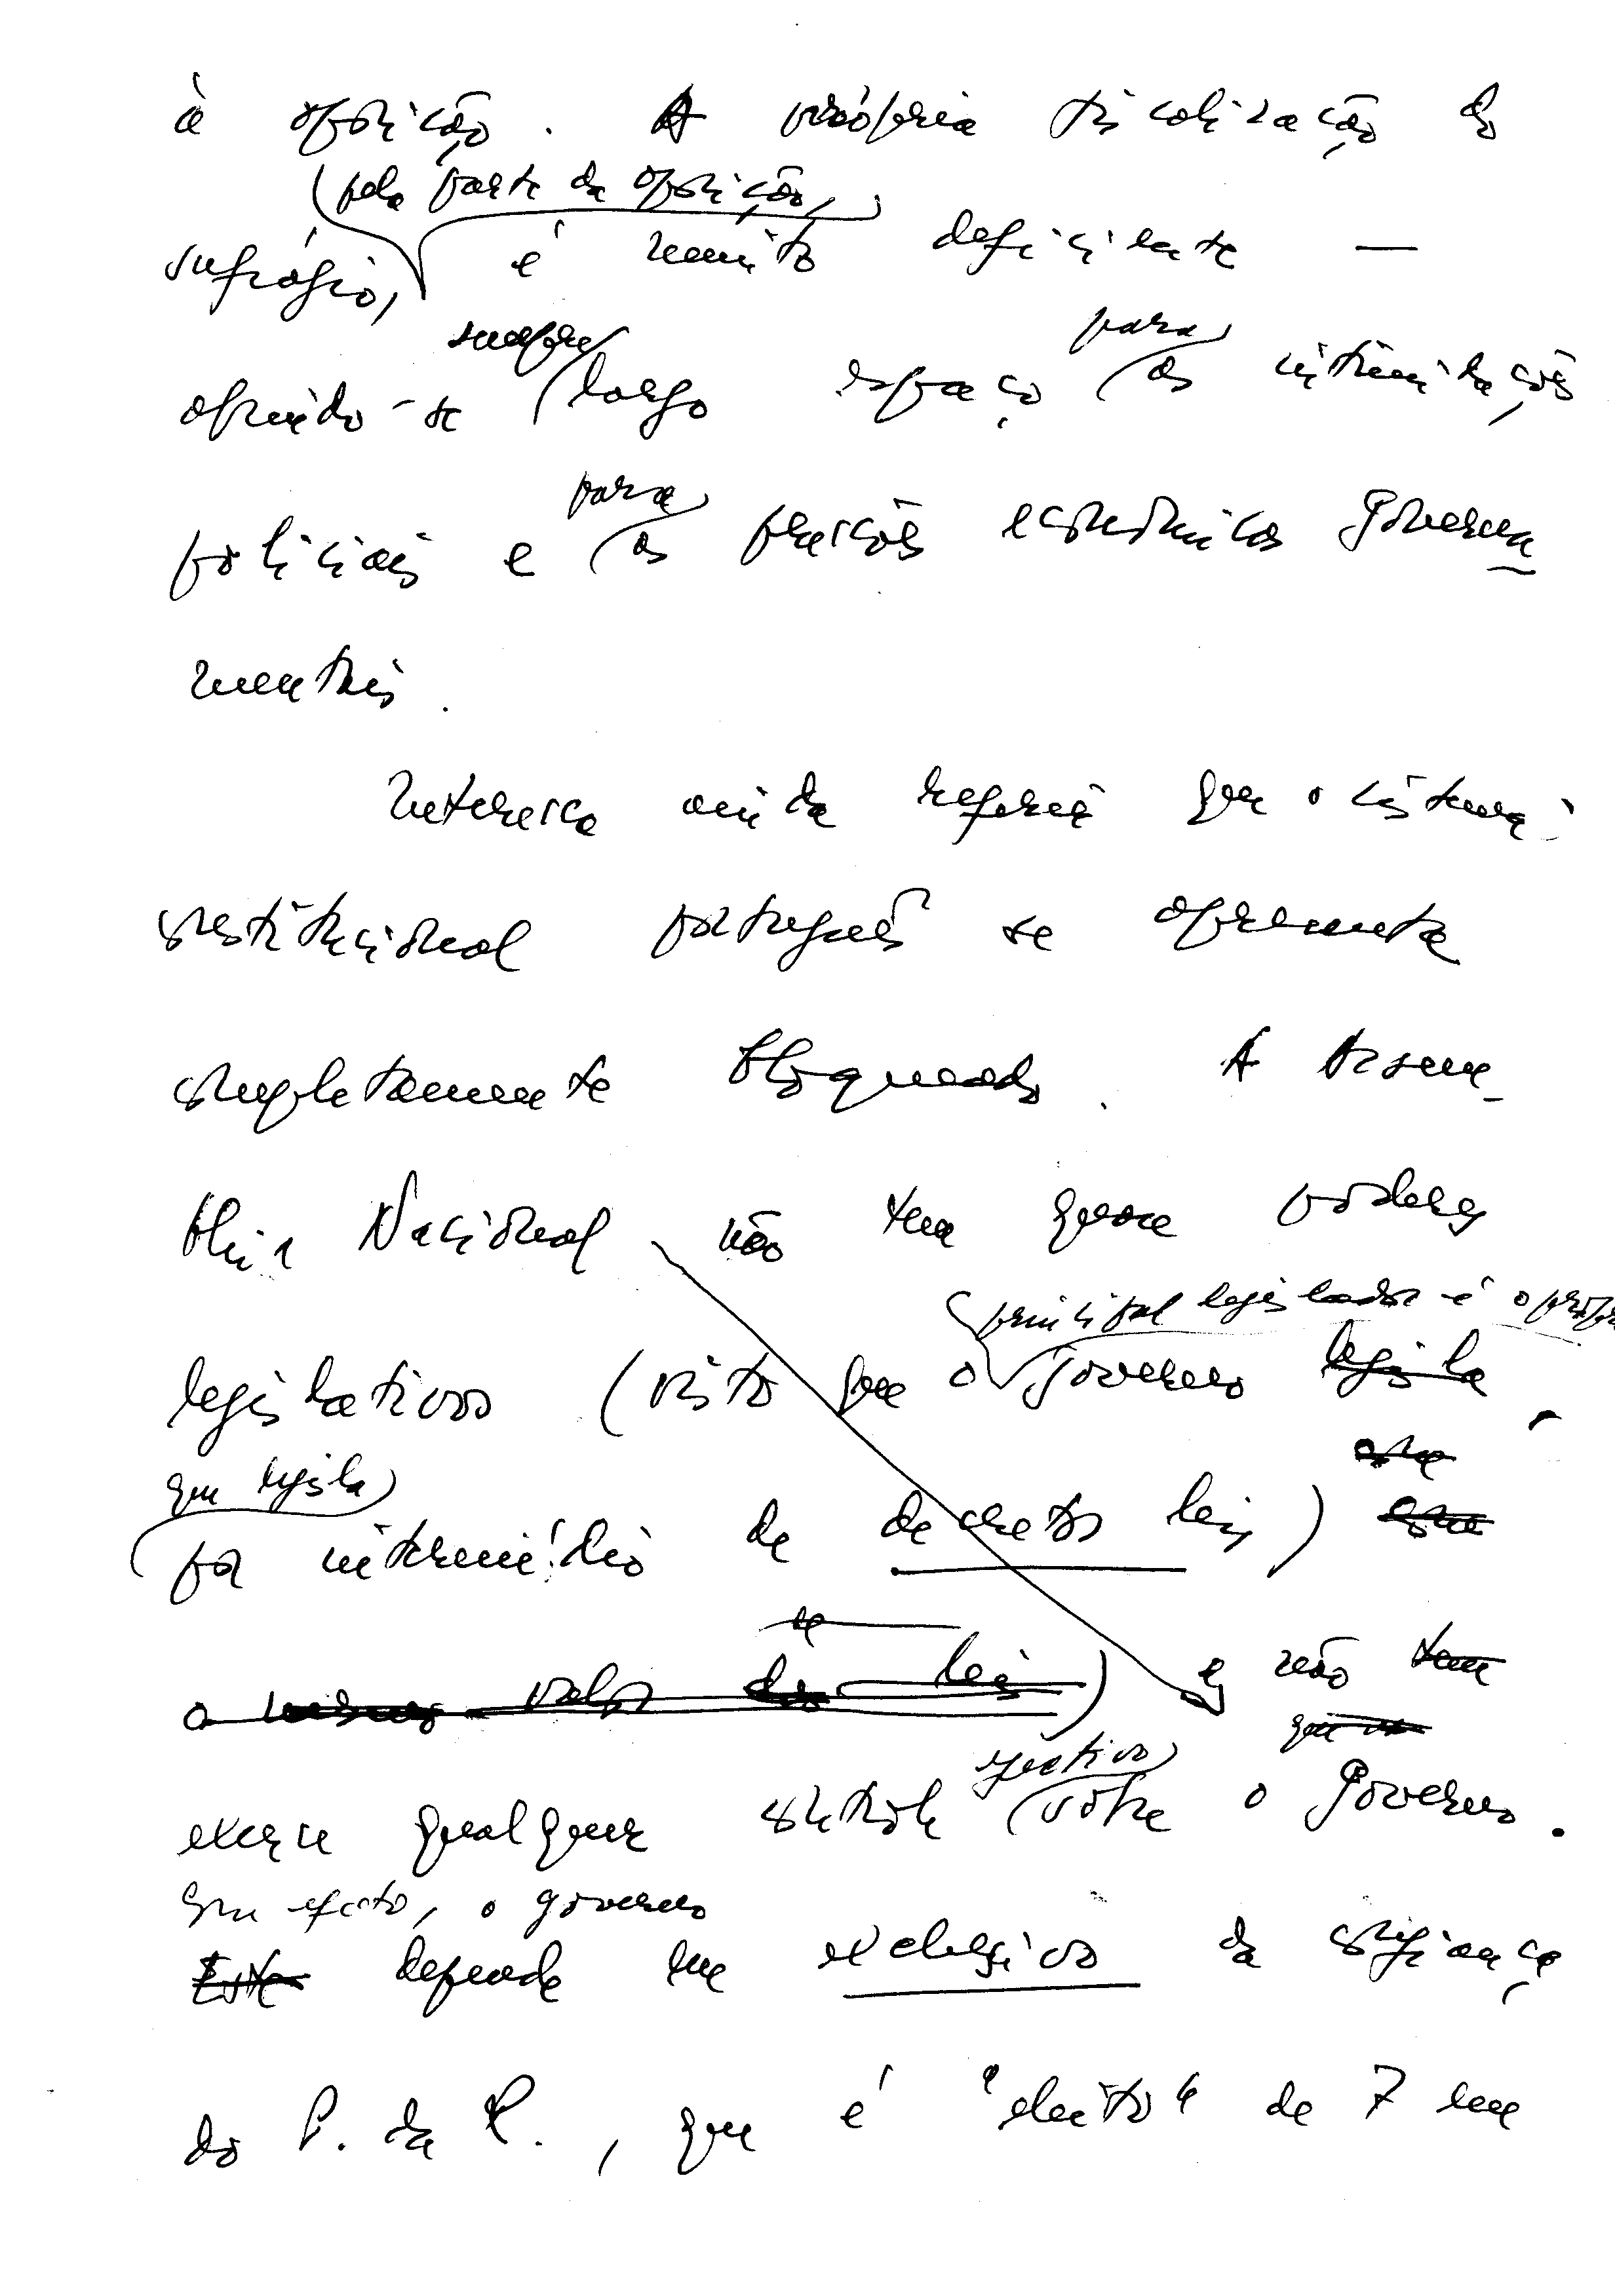 à oposição. A própria fiscalização do
pela parte da oposição,
sufrágio, é muito deficiente —
sempre para
abrindo-se largo espaço as intimidações
para
policiais e as pressões económicas governa
mentais.
Interessa ainda referir que o sistema
constitucional português se apresenta
completamente bloqueado. A Assem-
bleia Nacional não tem quase poderes
principal legislador é o próprio
legislativos (visto que o governo legisla
que legisla
por intermédio de decretos leis)
de
o mesmo valor das leis) e não tem
efectivo
exerce qualquer controle sobre o Governo.
Com efeito, o governo
Este depende em exclusivo da confiança
do P. da R., que é "eleito" de 7 em